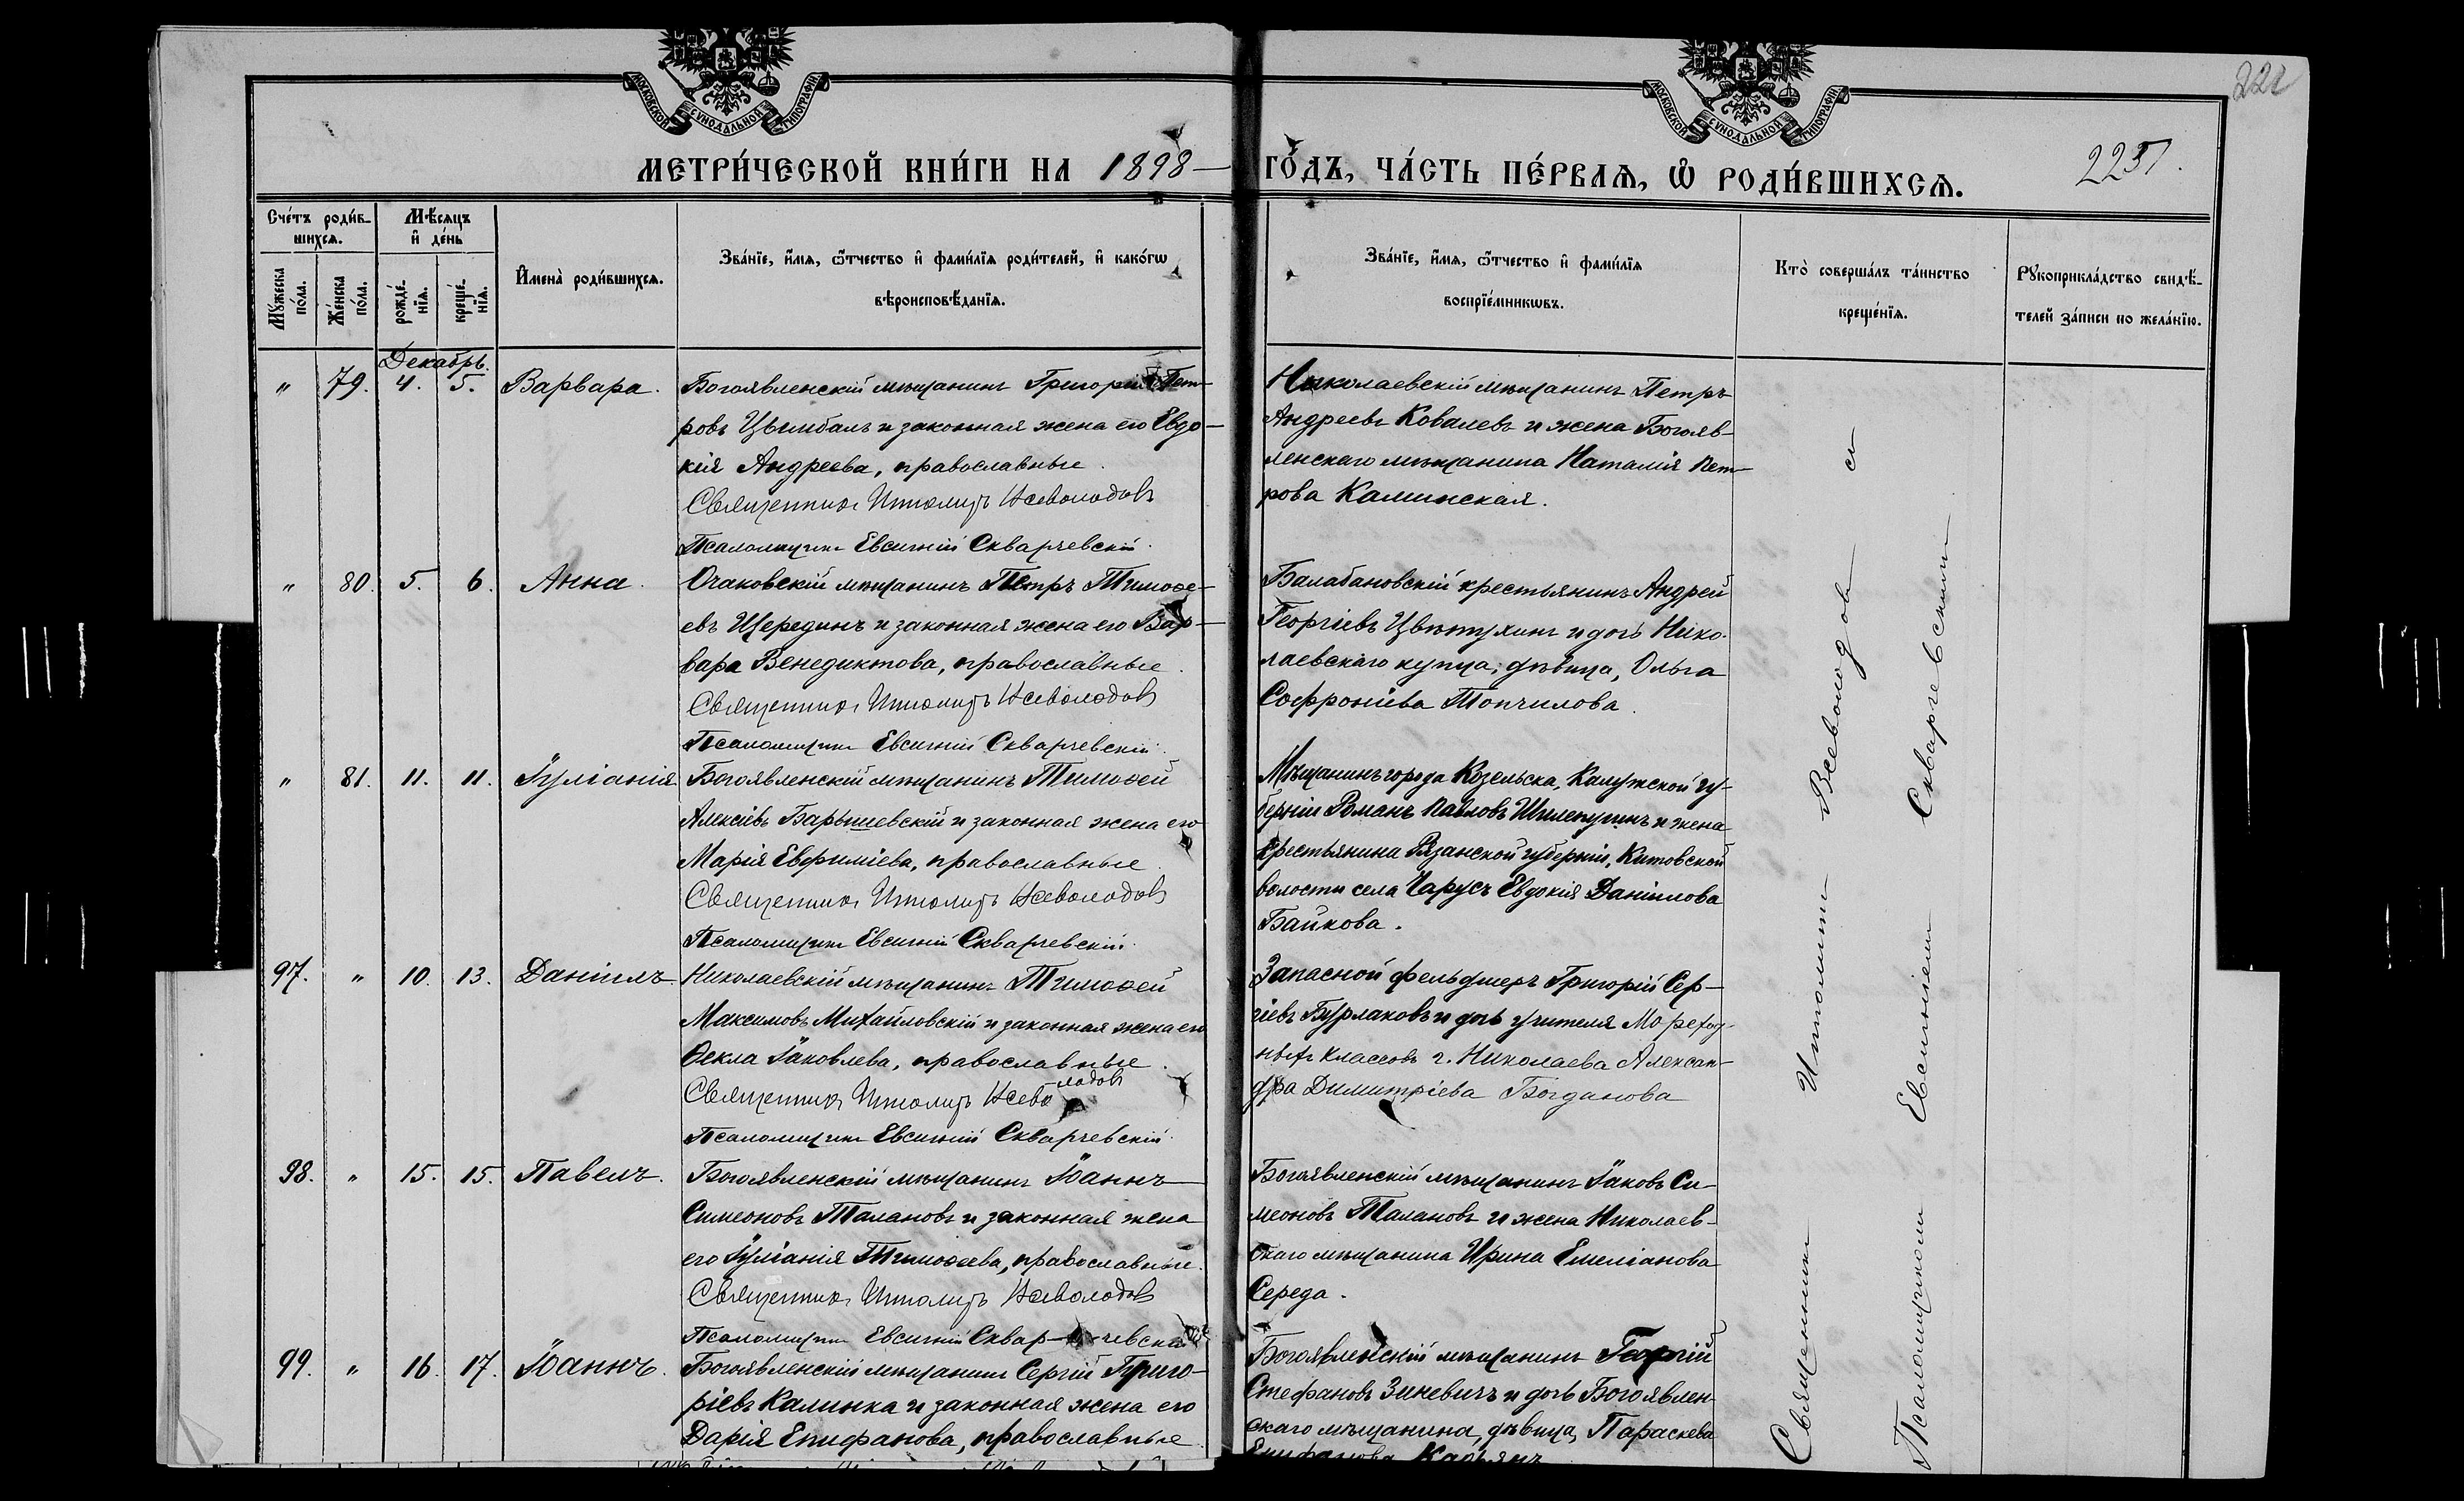 МОСКОВСКОЙ СѴНОДАЛЬНОЙ ТИПОГРАФІИ
МОСКОВСКОЙ СѴНОДАЛЬНОЙ ТИПОГРАФІИ
222
2237.
МЕТРИ́ЧЕСКОЙ КНИ́ГИ НА 1898 — ГО́ДЪ, ЧА́СТЬ ПЕ́РВАѦ, Ѡ҆ РОДИ́ВШИХСѦ.
Сче́тъ роди́в-
шихсѧ.
Мѣ́сѧцъ
и҆ де́нь
Мꙋ́жеска по́ла.
Же́нска по́ла.
рожде́-нїѧ.
креще́-нїѧ.
И҆мена̀ роди́вшихсѧ.
Зва́нїе, и҆́мѧ, ѻ҆́тчество и҆ фами́лїѧ роди́телей, и҆ како́гѡ
вѣроисповѣ́данїѧ.
Зва́нїе, и҆́мѧ, ѻ҆́тчество и҆ фами́лїѧ
воспрїе́мникѡвъ.
Кто̀ соверша́лъ та́инство
креще́нїѧ.
Рꙋкоприкла́дство свидѣ́-
телей за́писи по жела́нїю.
Декабрь.
" 79. 4. 5. Варвара.
Богоявленскій мѣщанинъ Григорій Пет-
ровъ Цымбалъ и законная жена его Евдо-
кія Андреева, православные.
Священникъ Ипполитъ Всеволодовъ
Псаломщикъ Евсигній Скварчевскій.
Николаевскій мѣщанинъ Петръ
Андреевъ Ковалевъ и жена Богояв-
ленскаго мѣщанина Наталія Пет-
рова Калинская.
" 80. 5. 6. Анна.
Очаковскій мѣщанинъ Петръ Тимоѳе-
евъ Щерединъ и законная жена его Вар-
вара Венедиктова, православные.
Священникъ Ипполитъ Всеволодовъ
Псаломщикъ Евсигній Скварчевскій.
Балабановскій крестьянинъ Андрей
Георгіевъ Цвѣтухинъ и дочь Нико-
лаевскаго купца, дѣвица, Ольга
Софроніева Топчилова.
" 81. 11. 11. Іуліанія
Богоявленскій мѣщанинъ Тимоѳей
Алексіевъ Барышевскій и законная жена его
Марія Евфиміева, православные.
Священникъ Ипполитъ Всеволодовъ
Псаломщикъ Евсигній Скварчевскій.
Мѣщанинъ города Козельска, Калужской гу-
берніи Романъ Павловъ Шилепугинъ и жена
крестьянина Рязанской губерніи, Китовской
волости села Чарусъ Евдокія Даніилова
Байкова.
97. " 10. 13. Даніилъ
Николаевскій мѣщанинъ Тимоѳей
Максимовъ Михайловскій и законная жена его
Ѳекла Іаковлева, православные.
Священникъ Ипполитъ Всеволодовъ
Псаломщикъ Евсигній Скварчевскій.
Запасной фельдшеръ Григорій Сер-
гіевъ Бурлаковъ и дочь учителя Мореход-
ныхъ классовъ г. Николаева Алексан-
дра Димитріева Богданова
98. " 15. 15. Павелъ.
Богоявленскій мѣщанинъ Іоаннъ
Симеоновъ Талановъ и законная жена
его Іуліанія Тимоѳеева, православные.
Священникъ Ипполитъ Всеволодовъ
Псаломщикъ Евсигній Сквар-чевскій
Богоявленскій мѣщанинъ Іаковъ Си-
меоновъ Талановъ и жена Николаев-
скаго мѣщанина Ирина Емеліанова
Середа.
99. " 16. 17. Іоаннъ.
Богоявленскій мѣщанинъ Сергій Григо-
ріевъ Калинка и законная жена его
Дарія Епифанова, православные.
Богоявленскій мѣщанинъ Георгій
Стефановъ Зиневичъ и дочь Богоявлен-
скаго мѣщанина, дѣвица, Параскева
Епифанова
Священникъ Ипполитъ Всеволодовъ съ
Псаломщикомъ Евсигніемъ Скварчевскимъ